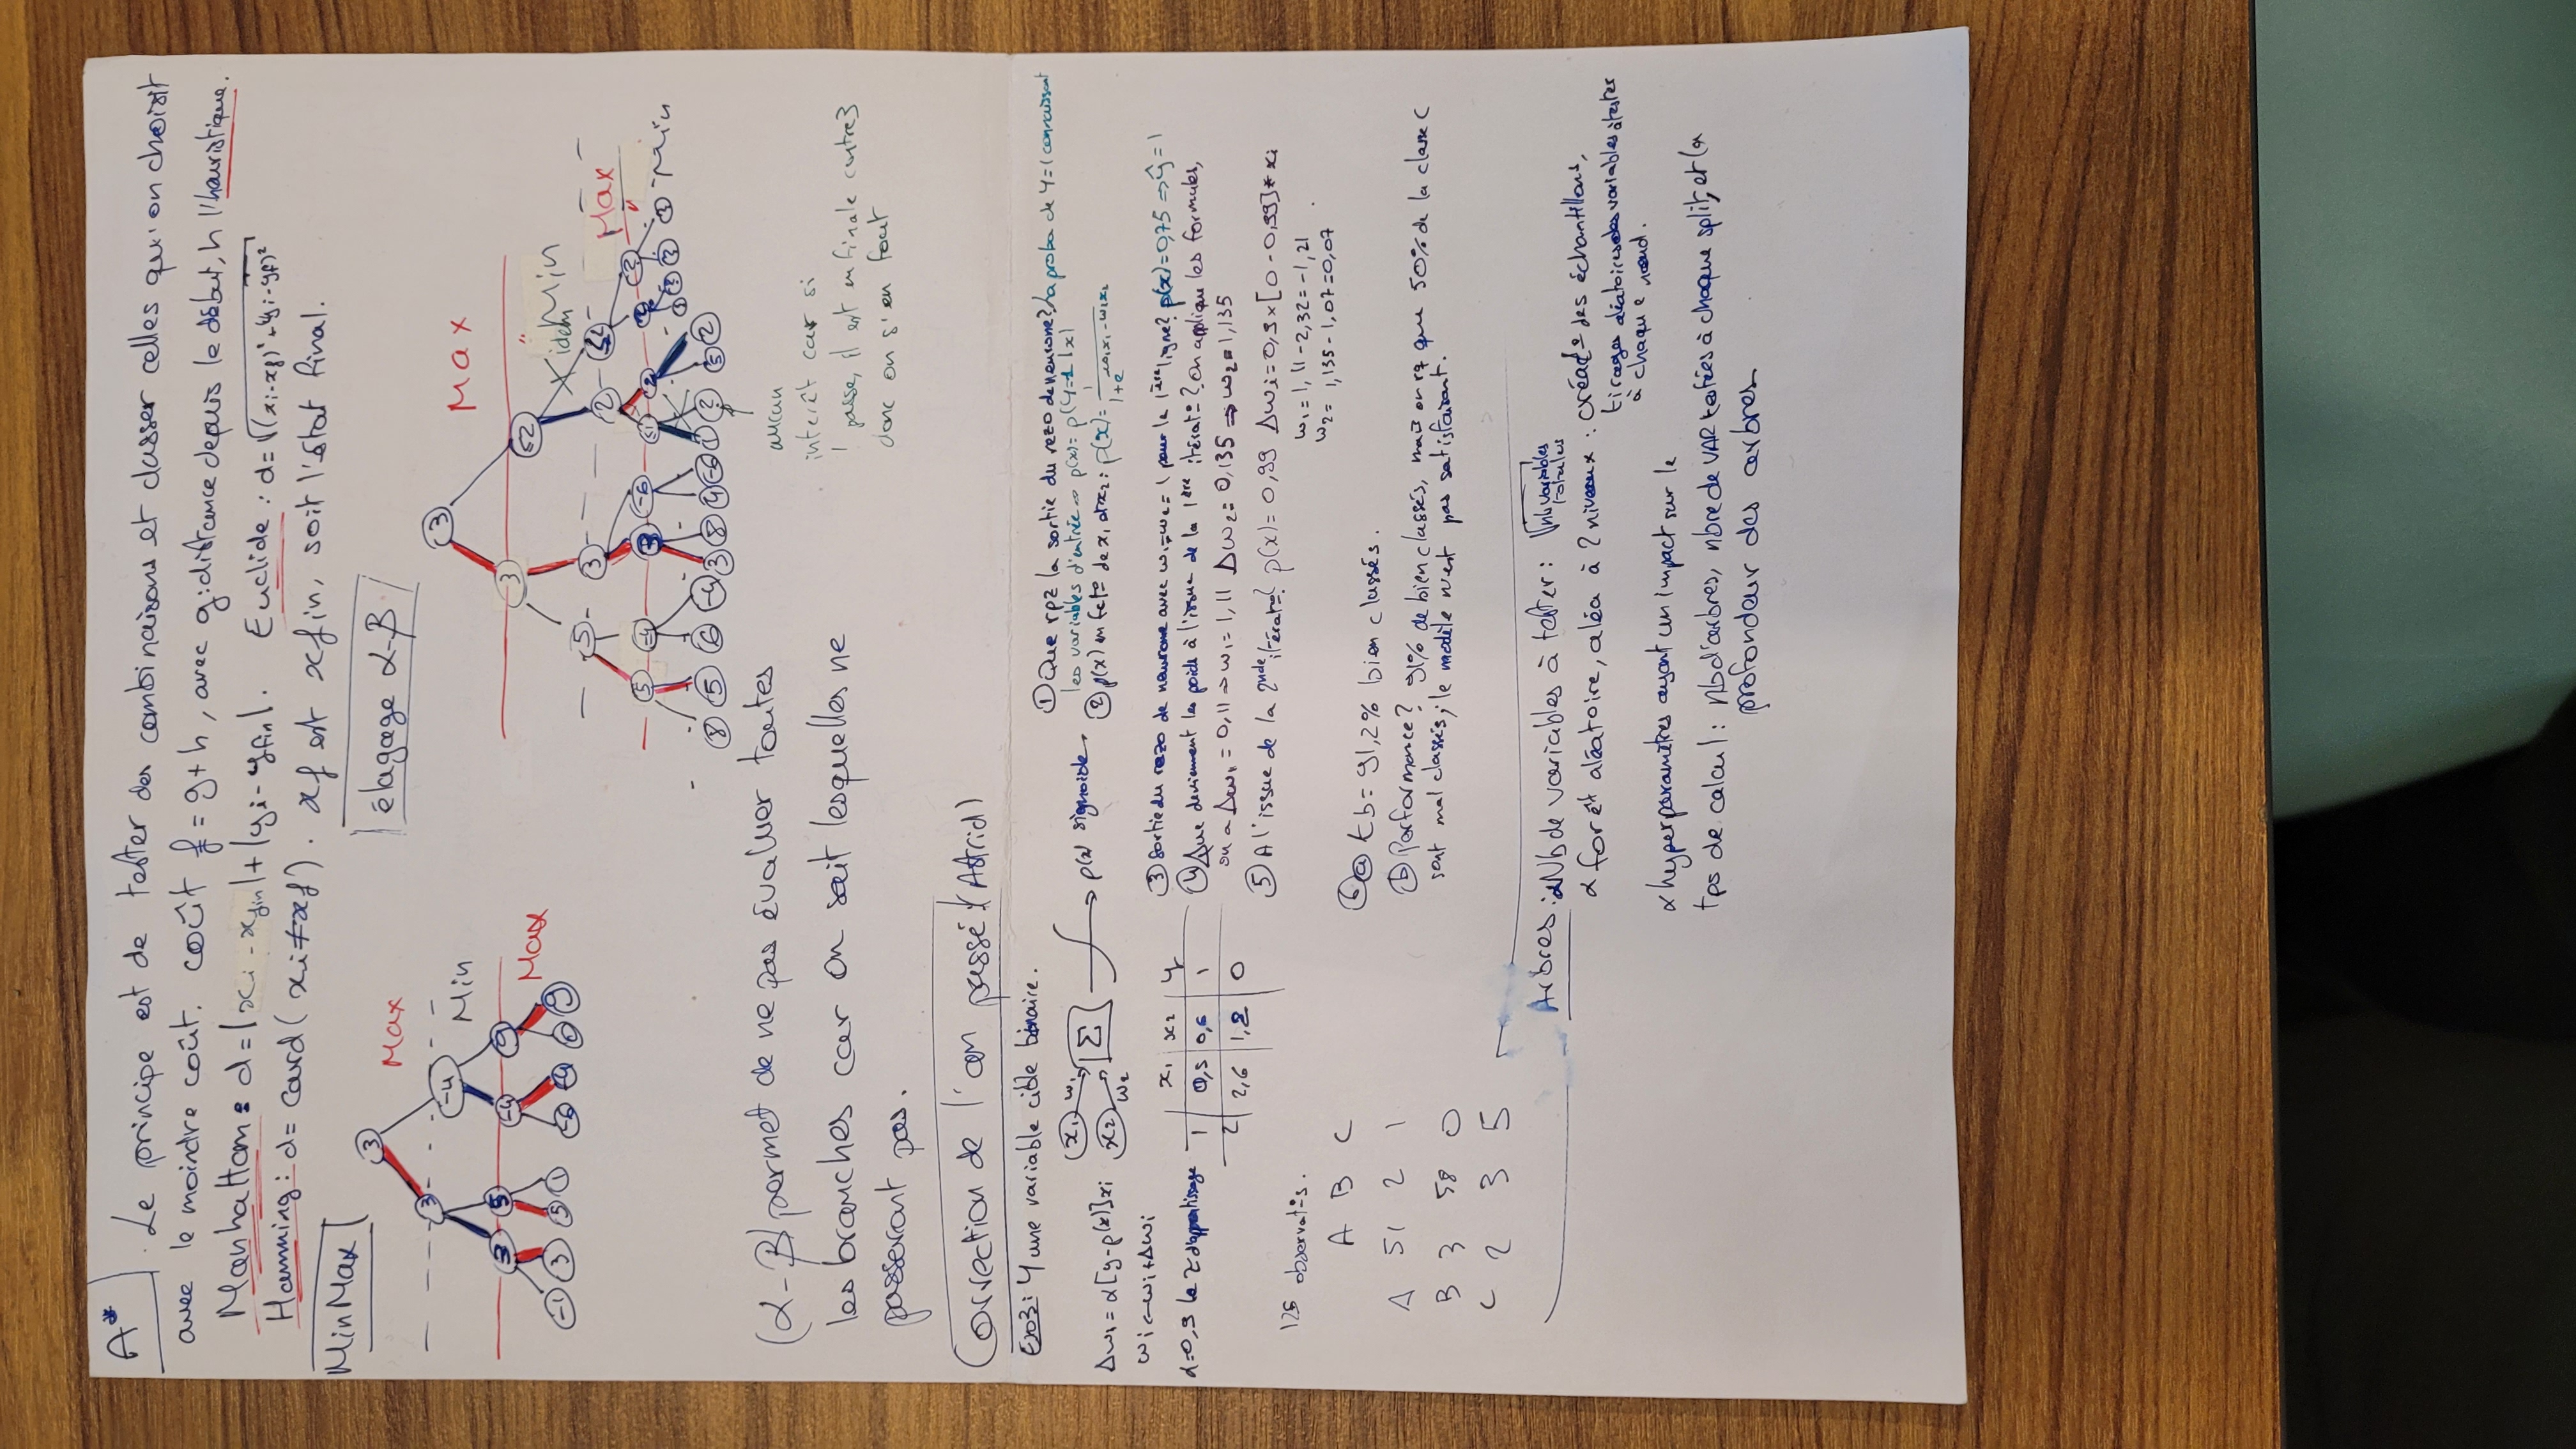 A*
. Le principe est de tester des combinaisons et classer celles qu'on choisit
avec le moindre coût. coût f = g + h, avec g: distance depuis le début, h l'heuristique.
Manhattan : d = |xi - xfin| + |yi - yfin|. Euclide : d = √((xi-xf)² + (yi-yf)²)
Hamming : d = card(xi ≠ xf). xf est xfin, soit l'état final.
MinMax
élagage α-β
3
Max
3
-4
Min
3 5 -4 9
Max
-1 3 5 1 -6 -4 0 9
3
Max
3
≤2
X idem
Min
5 3 2
Max
5 -4 3 -6 ≤1 2 2
Min
8 5 6 -4 3 8 4 -6 1 2 5 2
(α-β) permet de ne pas évaluer toutes
les branches car on sait lesquelles ne
passeront pas.
aucun
interêt car si
1 passe, il est en finale contre 3
donc on s'en fout
Correction de l'an passé (Astrid)
Exo3: Y une variable cible binaire.
x1 w1
x2 w2
Σ
p(x) sigmoide.
Δwi = α[y-p(x)]xi
wi ← wi + Δwi
α=0,9 le τ d'apprentissage
x1 x2 y
1 0,5 0,6 1
2 2,6 1,2 0
① Que rpz la sortie du rezo de neurone? La proba de Y=1 connaissant
les variables d'entrée ⇒ p(x) = p(Y=1|x)
② p(x) en fct° de x1 et x2 : p(x) = 1/(1+e^-w1x1-w2x2)
③ Sortie du rezo de neurone avec w1=w2=1 pour la 1ère ligne? p(x)=0,75 ⇒ ŷ=1
④ Que deviennent les poids à l'issue de la 1ère iterat°? On applique les formules,
on a Δw1 = 0,11 ⇒ w1 = 1,11 Δw2 = 0,135 ⇒ w2 = 1,135
⑤ A l'issue de la 2nde itérat°? p(x) = 0,99 Δwi = 0,9 × [0 - 0,99] * xi
w1 = 1,11 - 2,32 = -1,21
w2 = 1,135 - 1,07 = 0,07
125 observat°s.
A B C
A 51 2 1
B 3 58 0
C 2 3 5
⑥ ⓐ tb = 91,2% bien classés.
ⓑ Performance? 91% de bien classés, mais on rq que 50% de la classe C
sont mal classés, le modèle n'est pas satisfaisant.
Arbres : α Nb de variables à tester : √nb variables totales
α forêt aléatoire, aléa à 2 niveaux : créat° des échantillons,
tirages aléatoires des variables à tester
à chaque nœud.
α hyperparamètres ayant un impact sur le
tps de calcul : nb d'arbres, nbre de VAR testées à chaque split, et la
profondeur des arbres